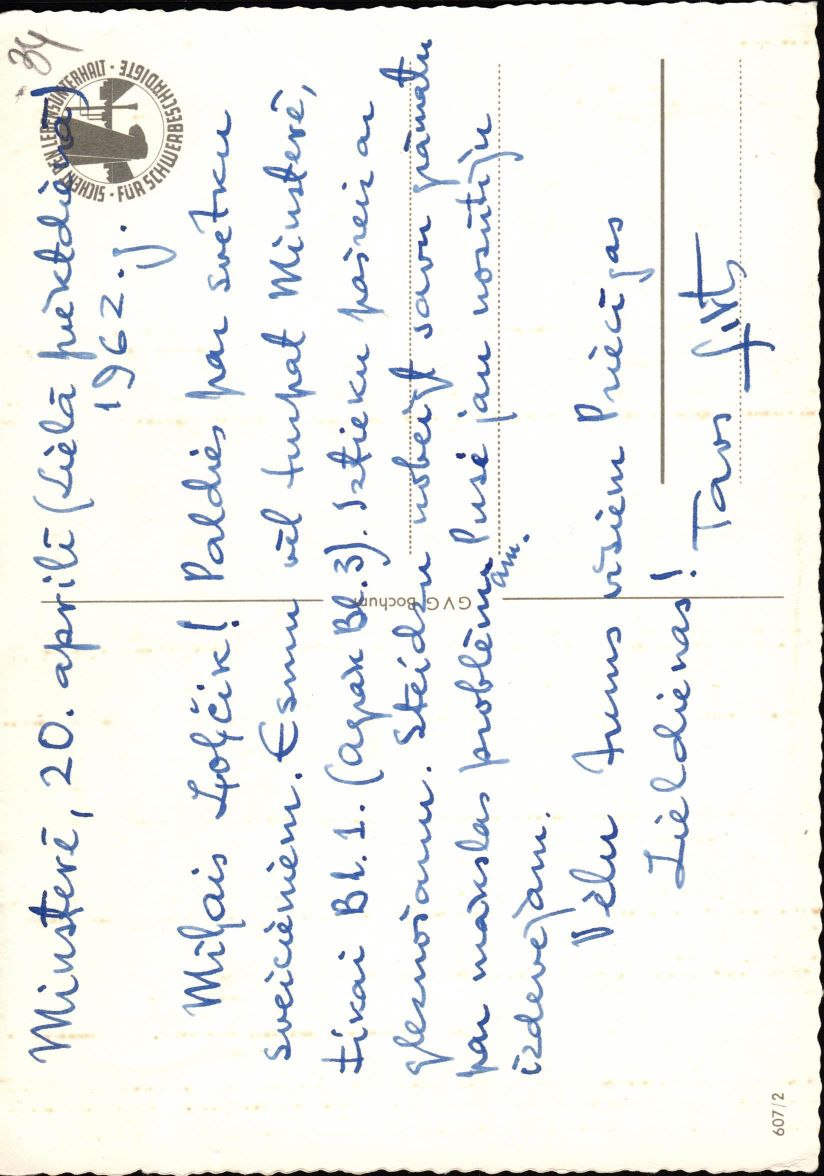 34
SICHERT DEN LEBENSUNTERHALT · FÜR SCHWERBESCHÄDIGTE ·
Minsterē, 20. aprilī (Lielā piektdienā)
1962. g.
Mīļais Ļoļčik! Paldies par svētku
sveicieniem. Esmu vēl turpat Minsterē,
tikai Bl. 1. (agrāk Bl. 3). Iztieku pareizi ar
gleznošanu. Steidzu nobeigt savu grāmatu
par mākslas problēmām. Pusi jau nosūtīju
izdevējam.
Vēlu Jums visiem Priecīgas
Lieldienas!
Tavs
GVG Bochum
607/2